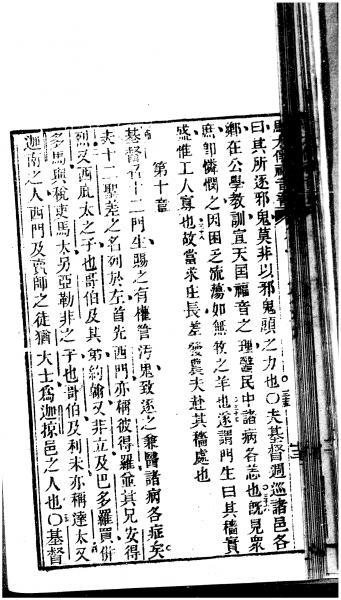 馬太傳福音書
曰其所逐邪鬼莫非以邪鬼頭之力也○夫基督週巡諸邑各
鄉在公學教訓宣天国福音之理醫民中諸病各恙也既見衆
庶卽憐憫之因困乏流蕩如無牧之羊也遂謂門生曰其穡實
盛惟工人寡也故當求庄長差發農夫赴其穡處也
第十章
基督召十二門生賜之有權管汚鬼致逐之兼醫諸病各症矣
夫十二聖差之名列於左首先西門亦稱彼得羅並其兄安得
烈又西庇太之子也哥伯及其弟約翰又非立及巴多羅買併
多馬與稅吏馬太另亞勒非之子也哥伯及利未亦稱達太又
迦南之人西門及賣師之徒猶大士為迦掠邑之人也○基督